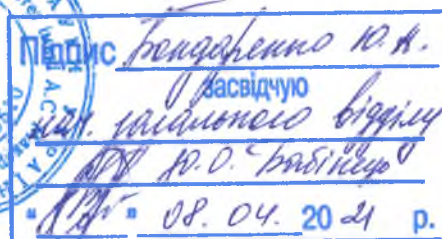 Підпис Бондаренко Ю. А.
засвідчую
нач. загального відділу
Ю. О. Бабінець
" " 08. 04. 20 21 р.